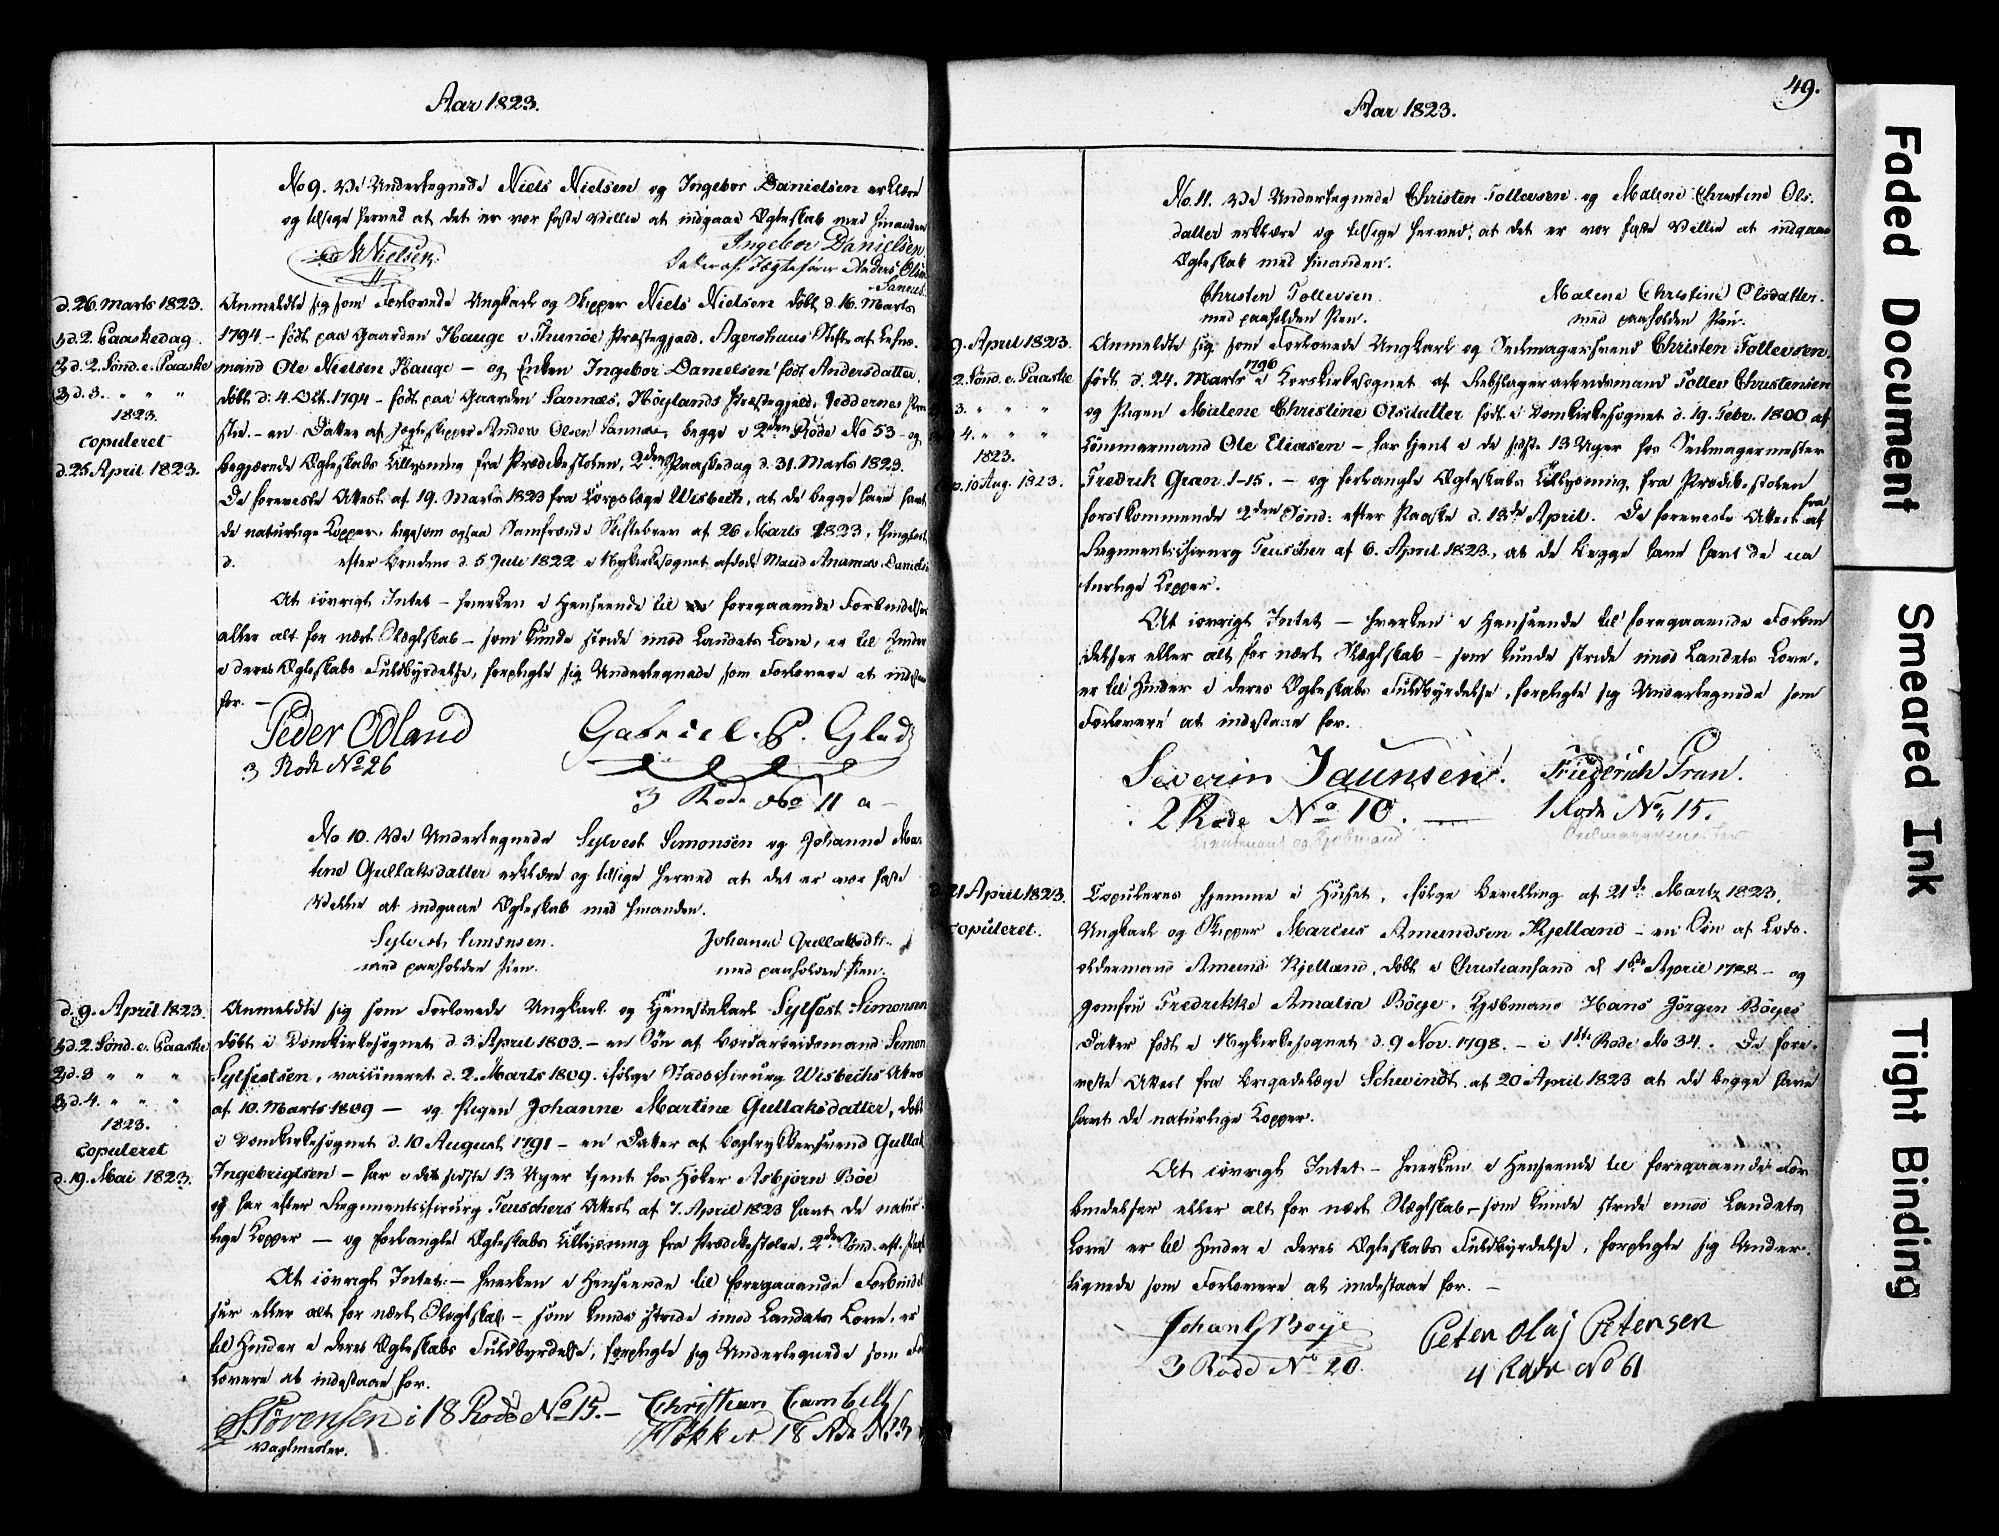 Aar 1823.
No 9. Vi Undertegnede Niels Nielsen og Ingebor Danielsen erklære
og tilsige herved at det er vor faste Villie at indgaae Ægteskab med hinanden
NNielsen
Ingebor Danielsen
Datter af Jægtefører Anders Olsen
Sannes
d. 26 Marts 1823.
1, d. 2. Paaskedag
2, d. 2. Sønd. e. Paaske
3, d. 3. " " "
1823.
copuleret
d. 25 April 1823.
Anmeldte sig som Forlovede Ungkarl og Skipper Niels Nielsen døbt d. 16. Marts
1794 - født paa Gaarden Hauge i Præstegjæld, Agershuus Stift af Lehns-
mand Ole Nielsen Hauge - og Enken Ingebor Danielsen født Andersdatter,
døbt d. 4. Oct. 1794 - født paa Gaarden Sannæs, Höylands Præstegjæld, Jeddernes Pro
stie. - en Datter af Jagteskipper Anders Olsen Sannæs, begge i 2den Rode No 53 - og
begjærede Ægteskabs Tillysning fra Prædikestolen, 2den Paaskedag d. 31. Marts 1823.
De foreviste Attest af 19. Marts 1823 fra Corpslæge Wisbech, at de begge have havt
de naturlige Kopper, ligesom ogsaa Samfrænde Skiftebrev af 26 Marts 1823, thinglæst
d. efter hendes d. 5 Juli 1822 i Nykirkesognet afdøde Mand Danielsen
At iøvrigt Intet - hverken i Henseende til foregaaende Forbindelser
eller alt for nært Slægtskab - som kunde stride imod Landets Love, er til Hinder
i deres Ægteskabs Fuldbyrdelse, forpligte sig Undertegnede som Forlovere at indestaae
for. -
Peder Odland
3 Rode No 26
Gabriel. P. Glad
3 Rode No 11 a -
No 10. Vi Undertegnede Sylvest Simonsen og Johanne Mar
tine Gullaksdatter erklære og tilsige herved at det er vor faste
Villie at indgaae Ægteskab med hinanden.
Sylvest Simonsen.
med paaholden Pen.
Johanne Gullaksdtr.
med paaholden Pen.
d. 9. April 1823.
1, d. 2. Sønd. e. Paaske
2, d. 3 " " "
3, d. 4. " " "
1823.
copuleret
d. 19. Mai 1823.
Anmeldte sig som Forlovede Ungkarl og Tjenestekarl Sylfest Simonsen
døbt i Domkirkesognet d. 3 April 1803. - en Søn af Bordarbeidsmand Simon
Sylfestsen, vaccineret d. 2. Marts 1809. ifølge Stadschirurg Wisbechs Attest
af 10. Marts 1809 - og Pigen Johanne Martine Gullaksdatter, døbt
i Domkirkesognet d. 10 August 1791 - en Datter af Bogtrykkersvend Gullak
Ingebrigtsen - har i de sidste 13 Uger tjent hos Høker Asbjørn Böe
og har efter Regimentschirurg Teuschers Attest af 7. April 1823 havt de natur-
lige Kopper - og forlangte Ægteskabs Tillysning fra Prædikestolen. 2den Sønd. eft. Paaske
At iøvrigt Intet - hverken i Henseende til foregaaende Forbindel
ser eller alt for nært Slægtskab - som kunde stride imod Landets Love, er
til Hinder i deres Ægteskabs Fuldbyrdelse, forpligte sig Undertegnede som For
lovere at indestaae for.
Sörensen i 18 Rode No 15. -
Vagtmester.
Christian Cambell
Høkker 18 Rode No 23
49.
Aar 1823.
No. 11. Vi Undertegnede Christen Tollevsen og Malene Christine Ols-
datter erklære og tilsige herved, at det er vor faste Villie at indgaae
Ægteskab med hinanden.
Christen Tollevsen
med paaholden Pen.
Malene Christine Olsdatter.
med paaholden Pen.
9. April 1823.
2. Sønd. e. Paaske
3. " " "
4. " " "
1823.
p. 10 Aug. 1823.
Anmeldte sig som Forlovede Ungkarl og Seilmagersvend Christen Tollevsen
født d. 24. Marts 1796 i Korskirkesognet af Rebslagerarbeidsmand Tollev Christensen
og Pigen Malene Christine Olsdatter født i Domkirkesognet d. 19. Febr. 1800 af
Tømmermand Ole Eliasen - har tjent i de sidste 13 Uger hos Seilmagermester
Fredrik Gran 1-15. - og forlangte Ægteskabs Tillysning fra Prædikestolen
førstkommende 2den Sønd: efter Paaske d. 13de April. De foreviste Attest fra af
Regimentschirurg Teuscher af 6. April 1823, at de begge have havt de na
turlige Kopper.
At iøvrigt Intet - hverken i Henseende til foregaaende Forbin
delser eller alt for nært Slægtskab - som kunde stride imod Landets Love,
er til Hinder i deres Ægteskabs Fuldbyrdelse, forpligte sig Undertegnede som
Forlovere at indestaae for.
Severin Jaunsen.
2 Rode No 10.
Lieutenant og Kjøbmand
Friederich Gran.
1 Rode No 15.
Seilmagermester
21 April 1823.
copuleret.
Copuleres hjemme i Huset, ifølge Bevilling af 21de Marts 1823.
Ungkarl og Skipper Marcus Amundsen Kjelland - en Søn af Lods-
oldermand Amund Kjelland, døbt i Christiansand d. 1ste April 1788 - og
Jomfru Fredrikke Amalia Böye, Kjøbmand Hans Jörgen Böyes
Datter født i Nykirkesognet d. 9 Nov. 1798. - i 1ste Rode No 34. De fore-
viste Attest fra Brigadelæge Schwindt af 20 April 1823 at de begge have
havt de naturlige Kopper.
At iøvrigt Intet - hverken i Henseende til foregaaende For
bindelser eller alt for nært Slægtskab - som kunde stride imod Landets
Love er til Hinder i deres Ægteskabs Fuldbyrdelse, forpligte sig Under-
tegnede som Forlovere at indestaae for. -
Johan G Böye
3 Rode No 20.
Peter Olaj Petersen
4 Rode No 61
Faded Document
Smeared Ink
Tight Binding